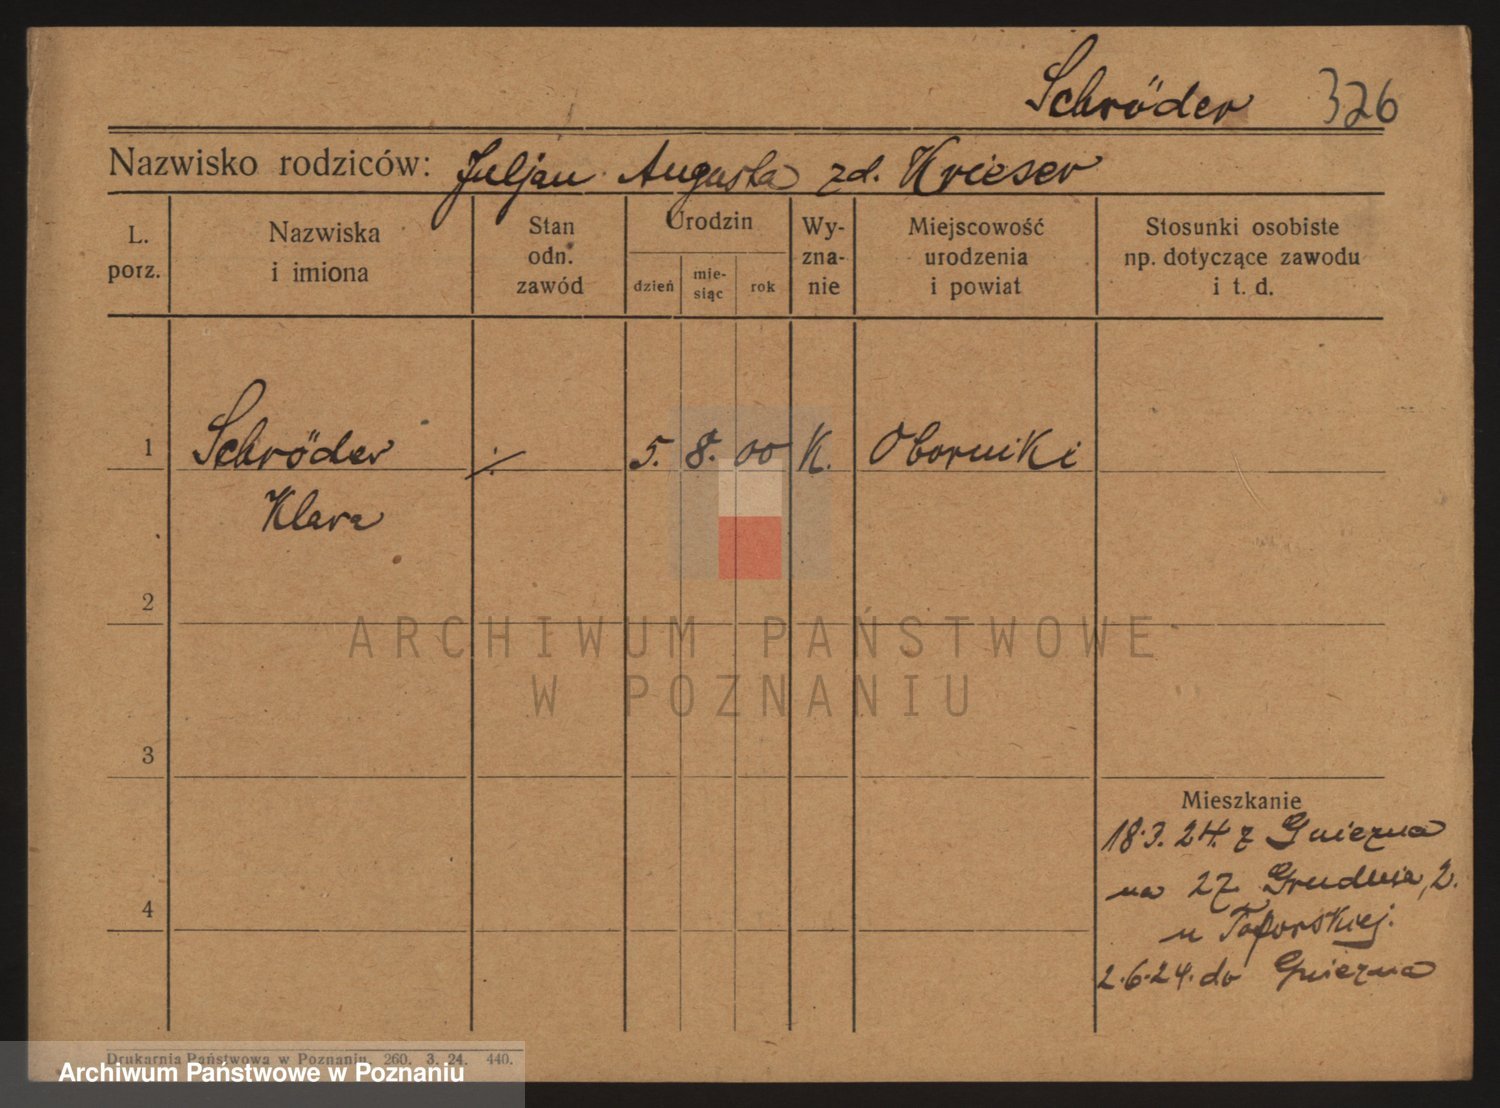 Schröder 326
Nazwisko rodziców: Juljan Augusta zd. Krieser
L. porz.
Nazwiska i imiona
Stan odn. zawód
Urodzin
dzień
mie-siąc
rok
Wy-zna-nie
Miejscowość urodzenia i powiat
Stosunki osobiste np. dotyczące zawodu i t. d.
1 Schröder ·/. 5. 8. 00 K. Oborniki
Klara
2
ARCHIWUM PAŃSTWOWE
W POZNANIU
3
Mieszkanie
18.3.24. z Gniezna
na 27 Grudnia, 2.
4
u Toporskiej.
2.6.24. do Gniezna
Drukarnia Państwowa w Poznaniu. 260. 3. 24. 440.
Archiwum Państwowe w Poznaniu